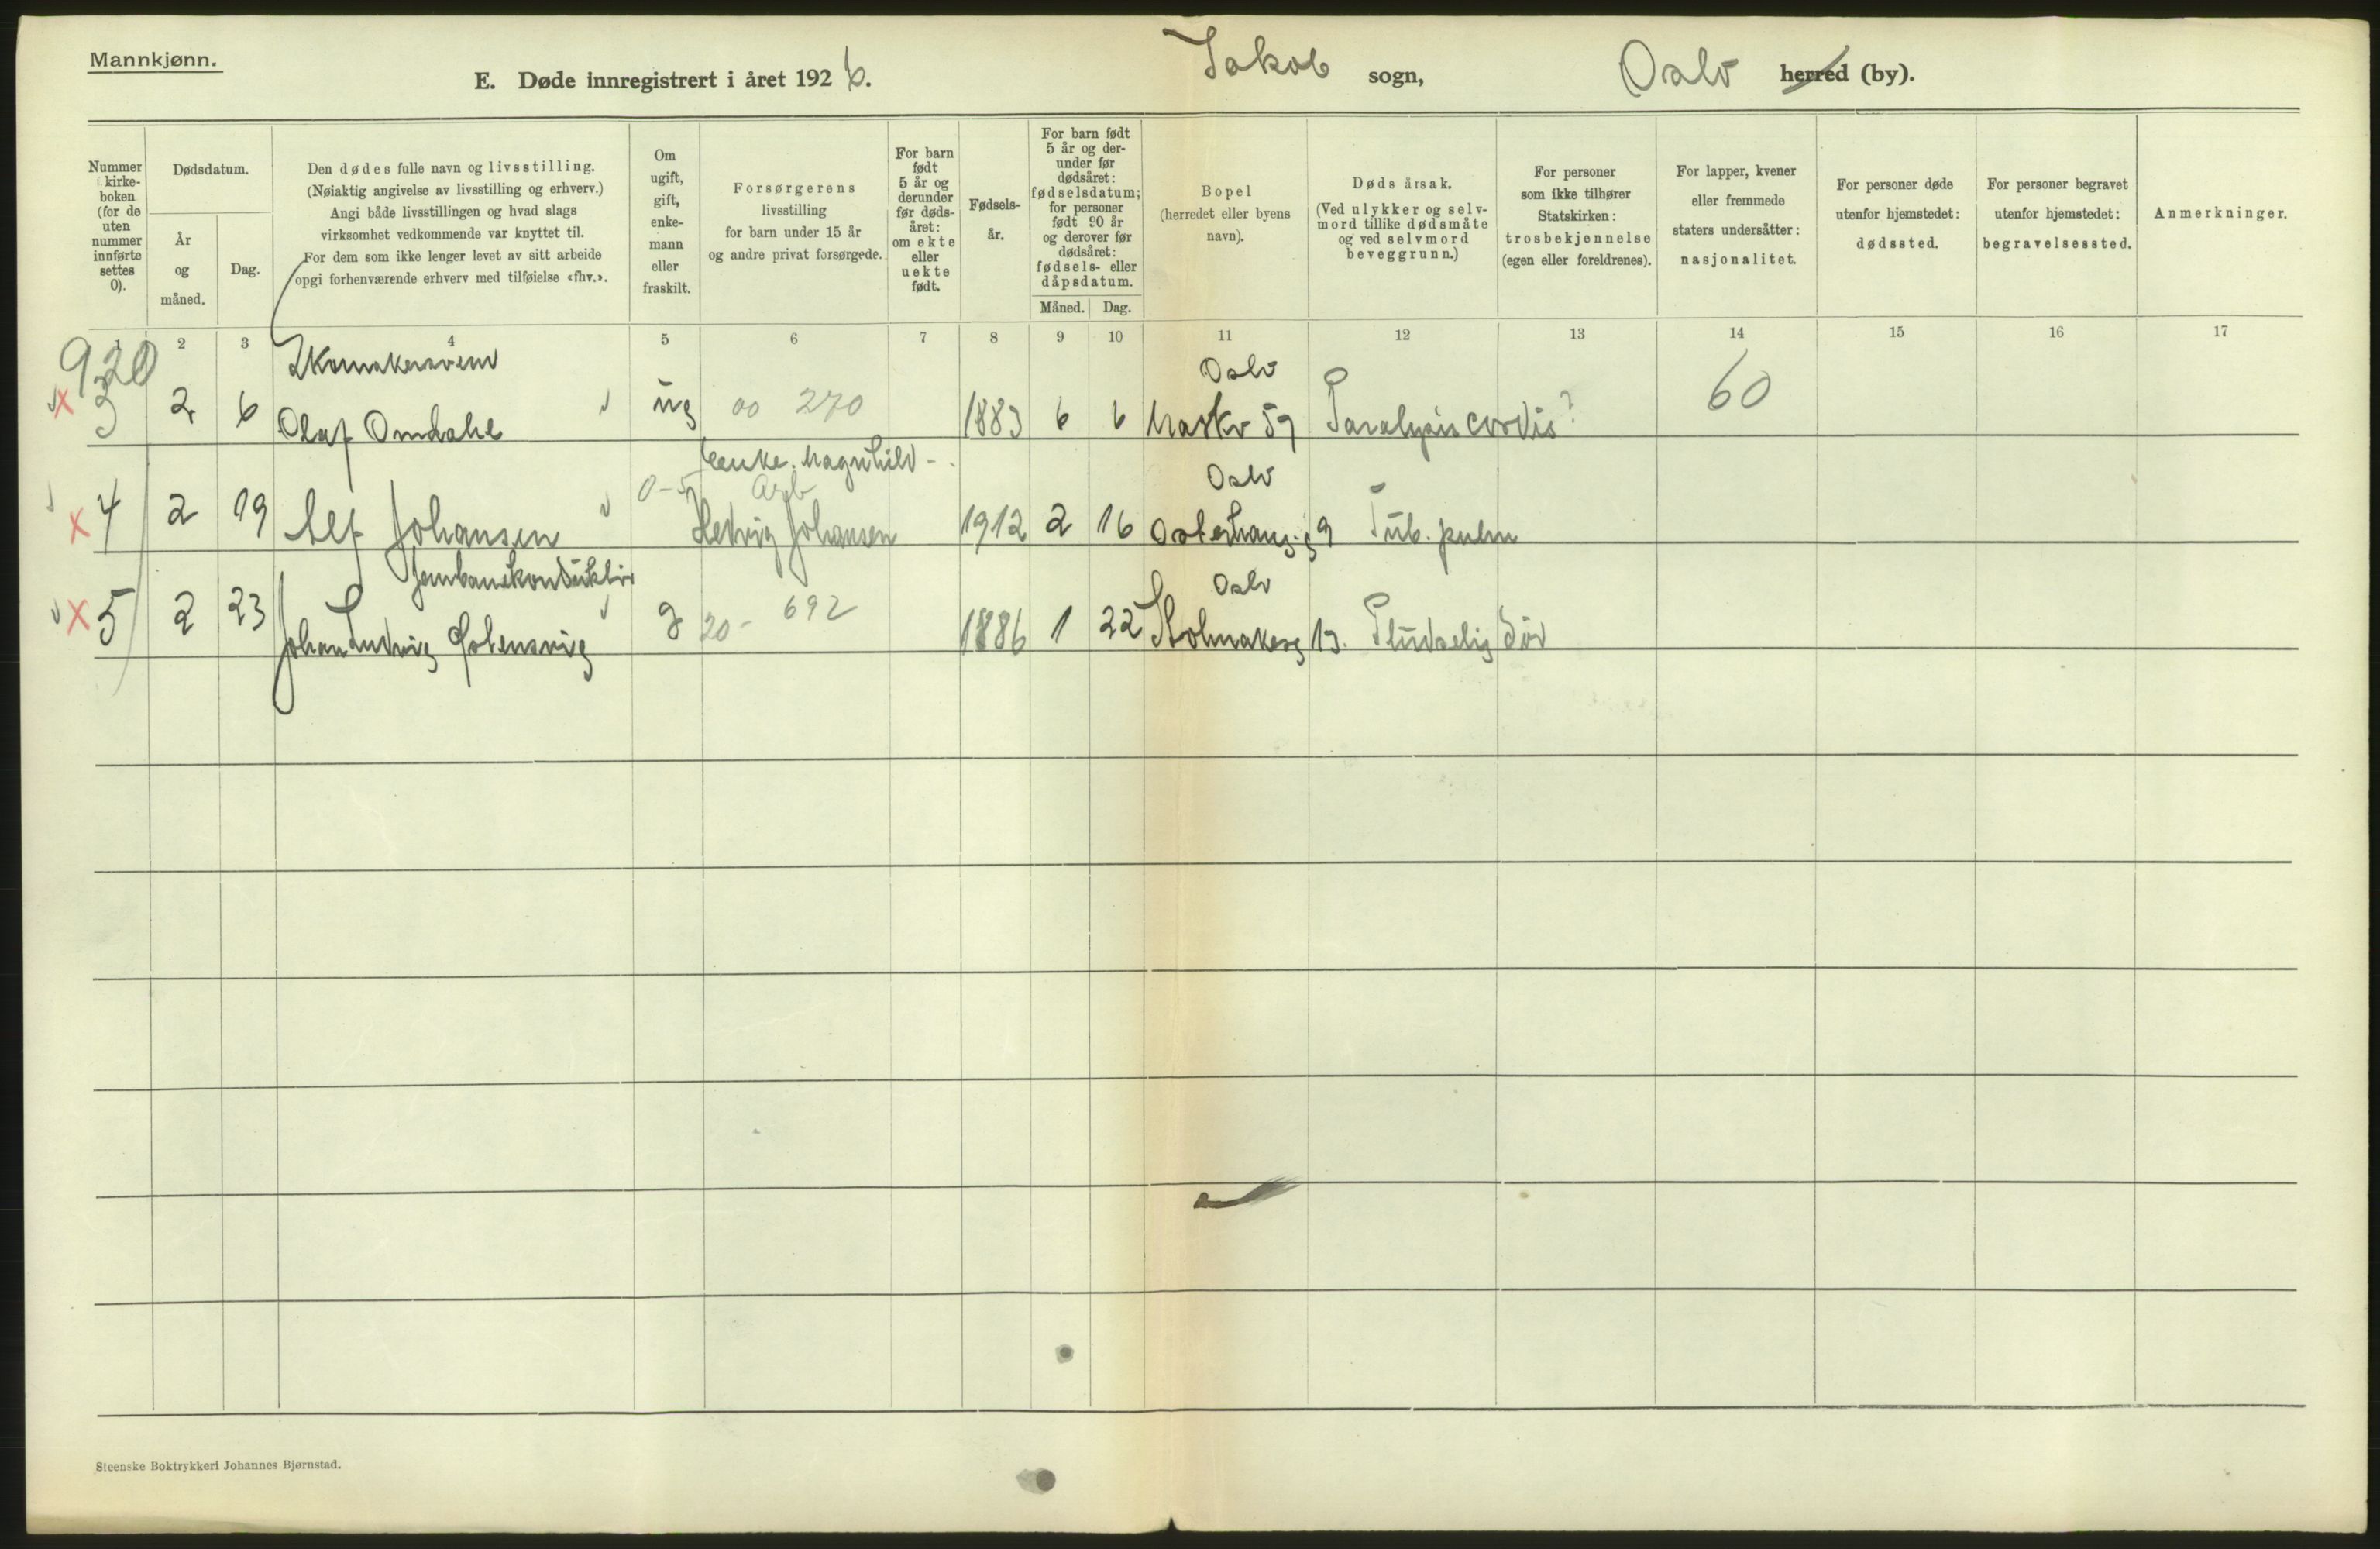 Mannkjønn.
E. Døde innregistrert i året 1926. Jakob sogn, Oslo herred (by).
Nummer i kirke-boken (for de uten nummer innførte settes 0).
Dødsdatum.
År og måned.
Dag.
Den dødes fulle navn og livsstilling.
(Nøiaktig angivelse av livsstilling og erhverv.)
Angi både livsstillingen og hvad slags
virksomhet vedkommende var knyttet til.
For dem som ikke lenger levet av sitt arbeide
opgi forhenværende erhverv med tilføielse «fhv.».
Om ugift, gift, enke-mann eller fraskilt.
Forsørgerens
livsstilling
for barn under 15 år
og andre privat forsørgede.
For barn født 5 år og derunder før døds-året: om ekte eller uekte født.
Fødsels-år.
For barn født 5 år og der-under før dødsåret: fødselsdatum; for personer født 90 år og derover før dødsåret: fødsels- eller dåpsdatum.
Måned. Dag.
Bopel
(herredet eller byens
navn).
Dødsårsak.
(Ved ulykker og selv-
mord tillike dødsmåte
og ved selvmord
beveggrunn.)
For personer
som ikke tilhører
Statskirken:
trosbekjennelse
(egen eller foreldrenes).
For lapper, kvener
eller fremmede
staters undersåtter:
nasjonalitet.
For personer døde
utenfor hjemstedet:
dødssted.
For personer begravet
utenfor hjemstedet:
begravelsessted.
Anmerkninger.
1 2 3 4 5 6 7 8 9 10 11 12 13 14 15 16 17
920 Skomakersvend Oslo
x 3 2 6 Olaf Omdahl ug 00 270 1883 6 6 Markv 59 Paralysis cordis? 60
Enke. Magnhild - Oslo
0-5 Arb
x 4 2 19 Alf Johansen Hedvig Johansen 1912 2 16 Osterhausg 9 Tub. pulm
Jernbanekonduktør Oslo
x 5 2 23 Johan Ludvig g 20- 692 1886 1 22 13. Pludselig død
Steenske Boktrykkeri Johannes Bjørnstad.